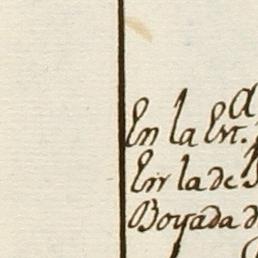 En la Est.
En la de
Boyada d